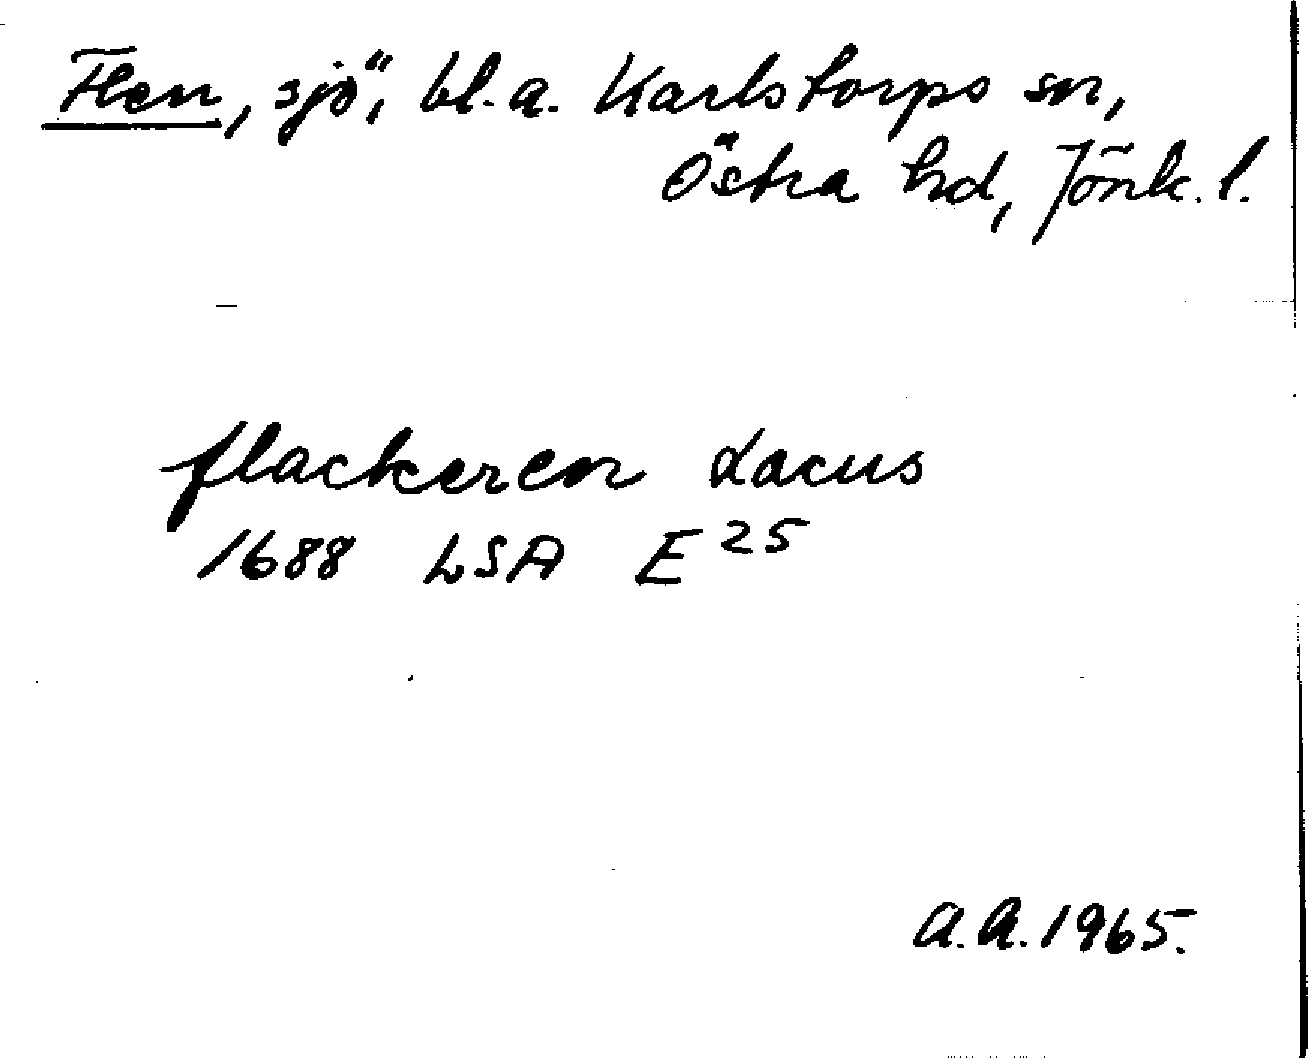 Flen, sjö, bl.a. Karlstorps sn,
Östra hd, Jönk. l.
flackeren Lacus
1688 LSA E 25
A.A. 1965.